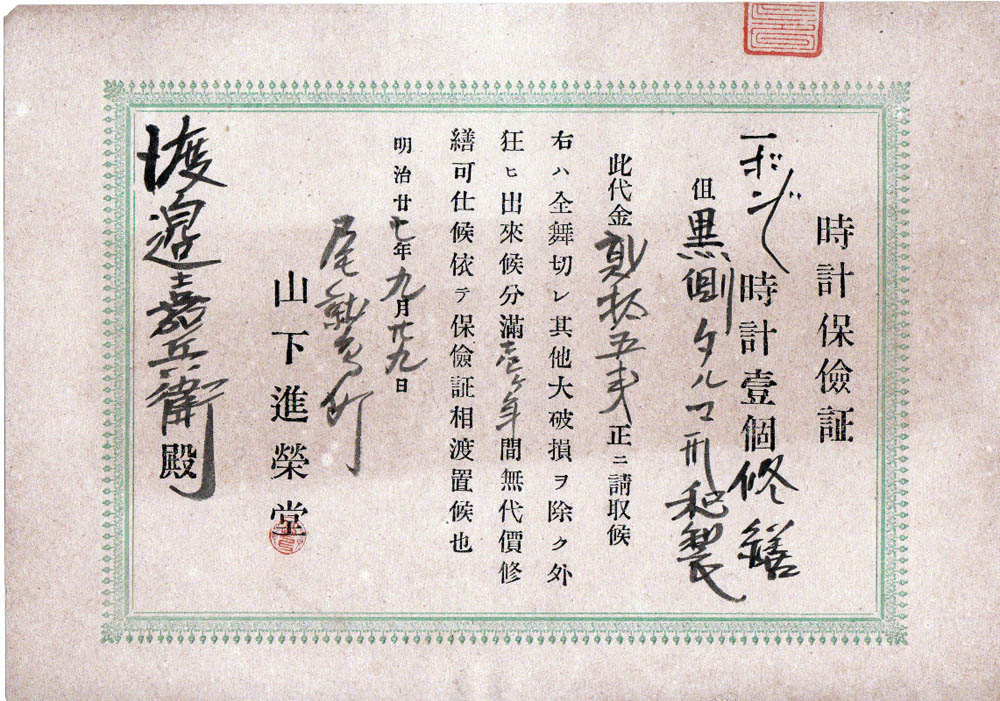 時計保儉証
一ボンボン時計壹個修繕
但黒側タルマ形和製
此代金貳拾五戋正ニ請取候
右ハ全舞切レ其他大破損ヲ除ク外
狂ヒ出來候分滿壱ヶ年間無代價修
繕可仕候依テ保儉証相渡置候也
明治廿七年九月廿九日
尾鷲町
山下進榮堂
渡邉嘉兵衛殿